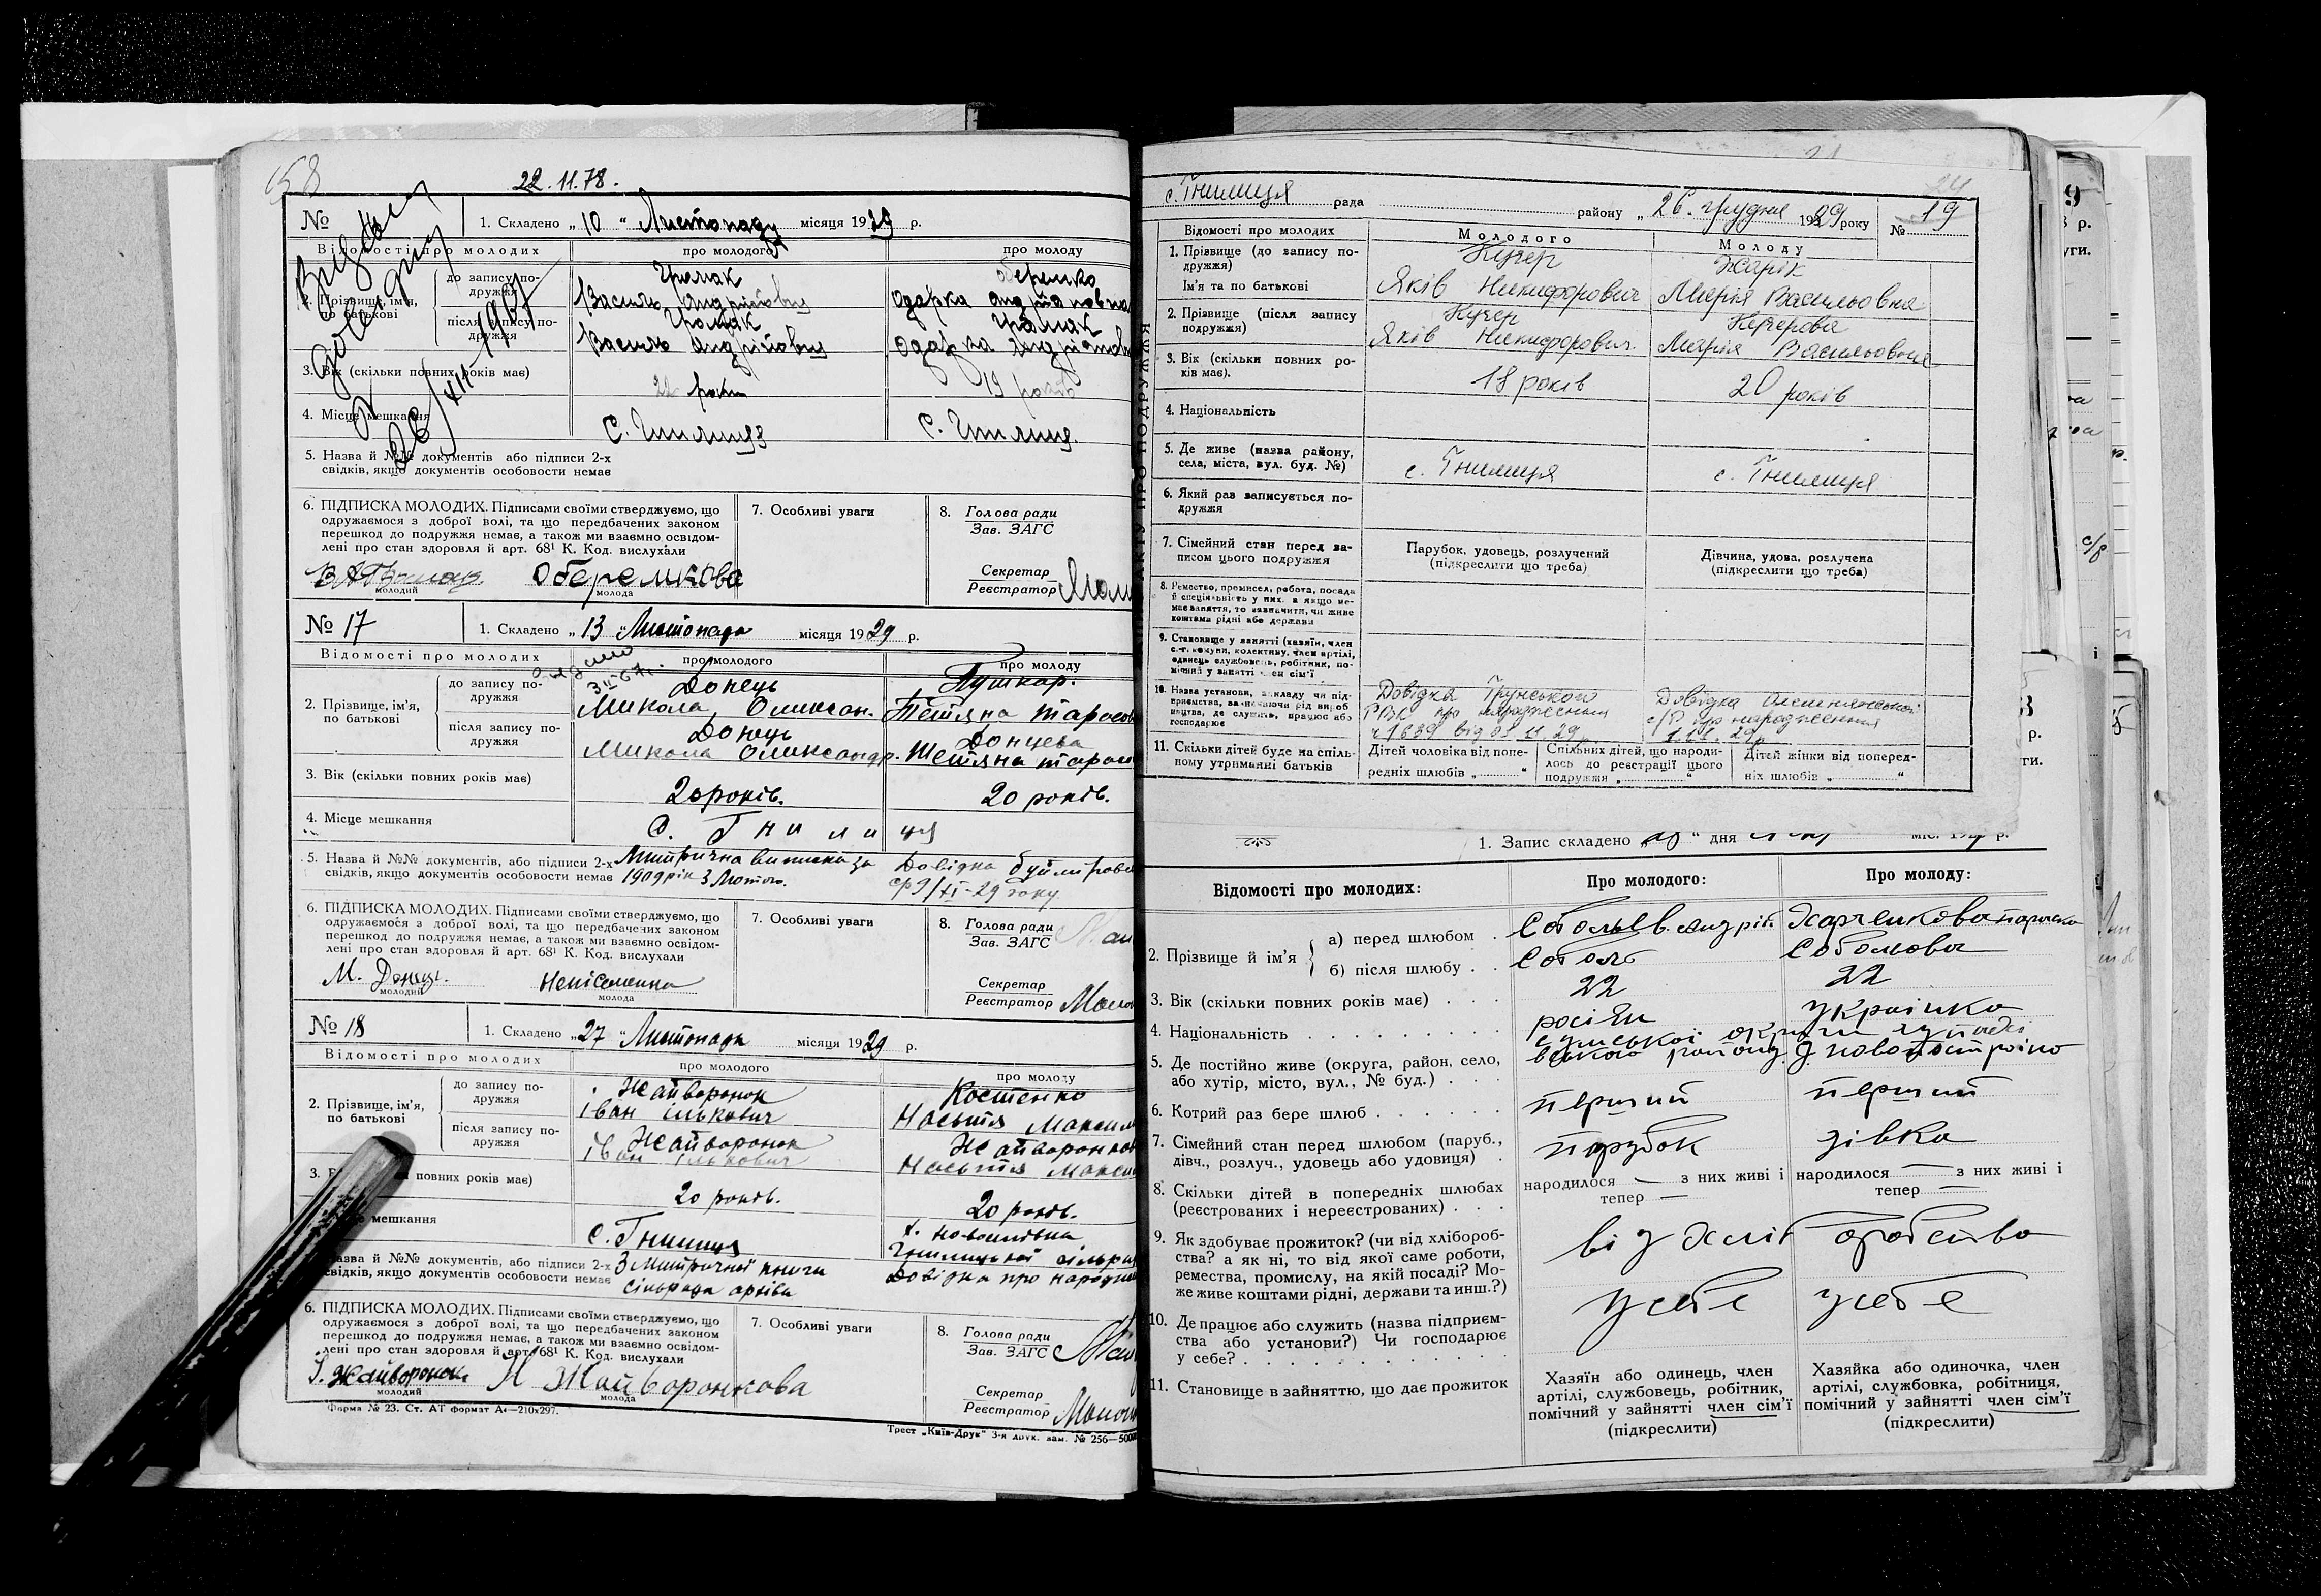 58
22.11.78.
№
1. Складено „ 10 “ Листопаду місяця 1929 р.
Відомості про молодих
про молодого
про молоду
2. Прізвище, ім'я, по батькові
до запису подружжя
Василь
Одарка
після запису подружжя
Василь
Одарка
3. Вік (скільки повних років має)
22 роки
19 років
4. Місце мешкання
с.
с.
5. Назва й №№ документів або підписи 2-х
свідків, якщо документів особовости немає
6. ПІДПИСКА МОЛОДИХ. Підписами своїми стверджуємо, що
одружаємося з доброї волі, та що передбачених законом
перешкод до подружжя немає, а також ми взаємно освідом-
лені про стан здоров'я й арт. 68¹ К. Код. вислухали
7. Особливі уваги
8. Голова ради
Зав. ЗАГС
Секретар
Реєстратор
молодий
молода
№ 17
1. Складено „ 13 “ Листопада місяця 1929 р.
Відомості про молодих
про молодого
про молоду
2. Прізвище, ім'я,
по батькові
до запису по-
дружжя
Донець
Пушкар.
Микола Олексан.
Тетяна Тарасов
після запису по-
дружжя
Донець
Донцева
Микола Олександр.
Тетяна Тарас
3. Вік (скільки повних років має)
20 років.
20 років.
4. Місце мешкання
с. Гнилиця
5. Назва й №№ документів, або підписи 2-х
свідків, якщо документів особовости немає
Метрична виписка за
1909 рік 3 Лютого.
Довідка
6. ПІДПИСКА МОЛОДИХ. Підписами своїми стверджуємо, що
одружаємося з доброї волі, та що передбачених законом
перешкод до подружжя немає, а також ми взаємно освідом-
лені про стан здоров'я й арт. 68¹ К. Код. вислухали
7. Особливі уваги
8. Голова ради
Зав. ЗАГС
Секретар
Реєстратор
М. Донець
молодий
молода
№ 18
1. Складено „ 27 “ Листопада місяця 1929 р.
Відомості про молодих
про молодого
про молоду
2. Прізвище, ім'я,
по батькові
до запису по-
дружжя
Жайворонок
Костенко
Іван Ількович
Настя Максим
після запису по-
дружжя
Жайворонок
Жайворонков
Іван Ількович
Настя Макси
3. повних років має)
20 років.
20 років.
мешкання
с. Гнилиця
х.
Гнилицької сільрад
Назва й №№ документів, або підписи 2-х
свідків, якщо документів особовости немає
З Метричної книги
сільрада архіва
Довідка про народж
6. ПІДПИСКА МОЛОДИХ. Підписами своїми стверджуємо, що
одружаємося з доброї волі, та що передбачених законом
перешкод до подружжя немає, а також ми взаємно освідом-
лені про стан здоров'я й арт. 68¹ К. Код. вислухали
7. Особливі уваги
8. Голова ради
Зав. ЗАГС
Секретар
Реєстратор
І. Жайворонок
молодий
Н Жайворонкова
молода
Форма № 23. Ст. АТ формат А4—210x297.
Трест „Київ-Друк“ 3-я друк. зам. № 256—500
с. Гнилиця рада району „ 26. грудня 1929 року № 19
Відомості про молодих
Молодого
Молоду
1. Прізвище (до запису по-
дружжя)
Ім'я та по батькові
Кучер
Яків Никифорович
Марія Васильовна
2. Прізвище (після запису
подружжя)
Кучер
Кучерова
Яків Никифорович.
Марія Васильовна
3. Вік (скільки повних ро-
ків має).
18 років
20 років
4. Національність
5. Де живе (назва району,
села, міста, вул. буд. №)
с. Гнилиця
с. Гнилиця
6. Який раз записується по-
дружжя
7. Сімейний стан перед за-
писом цього подружжя
Парубок, удовець, розлучений
(підкреслити що треба)
Дівчина, удова, розлучена
(підкреслити що треба)
8. Ремество, промисел, робота, посада
й спеціяльність у них, а якщо не-
має заняття, то зазначити, чи живе
коштами рідні або держави
9. Становище у занятті (хазяїн, член
с.-г. комуни, колективу, член артілі,
одинець службовець, робітник, по-
мічний у занятті член сім'ї
10. Назва установи, закладу чи під-
приємства, зазначаючи рід вироб
ництва, де служить, працює або
господарює
Довідка Грунського
РВК про народження
ч 1639 від 01.11.29р.
Довідка
с/Р про народження
11. Скільки дітей буде на спіль-
ному утриманні батьків
Дітей чоловіка від попе-
редніх шлюбів „ “
Спільних дітей, що народи-
лось до реєстрації цього
подружжя „ “
Дітей жінки від поперед-
ніх шлюбів „ “
1. Запис складено „ “ дня
Відомості про молодих:
Про молодого:
Про молоду:
2. Прізвище й ім'я
а) перед шлюбом
Харченкова
б) після шлюбу
Соболь
Соболова
3. Вік (скільки повних років має)
22
22
4. Національність
росіян
українка
5. Де постійно живе (округа, район, село,
або хутір, місто, вул., № буд.)
Сумської округи
району
6. Котрий раз бере шлюб
перший
перший
7. Сімейний стан перед шлюбом (паруб.,
дівч., розлуч., удовець або удовиця)
парубок
дівка
8. Скільки дітей в попередніх шлюбах
(реєстрованих і нереєстрованих)
народилося — з них живі і
тепер —
народилося — з них живі і
тепер —
9. Як здобуває прожиток? (чи від хлібороб-
ства? а як ні, то від якої саме роботи,
ремества, промислу, на якій посаді? Мо-
же живе коштами рідні, держави та инш.?)
від хліборобства
10. Де працює або служить (назва підприєм-
ства або установи?) Чи господарює
у себе?
у себе
у себе
11. Становище в зайняттю, що дає прожиток
Хазяїн або одинець, член
артілі, службовець, робітник,
помічний у зайнятті член сім'ї
(підкреслити)
Хазяйка або одиночка, член
артілі, службовка, робітниця,
помічний у зайнятті член сім'ї
(підкреслити)